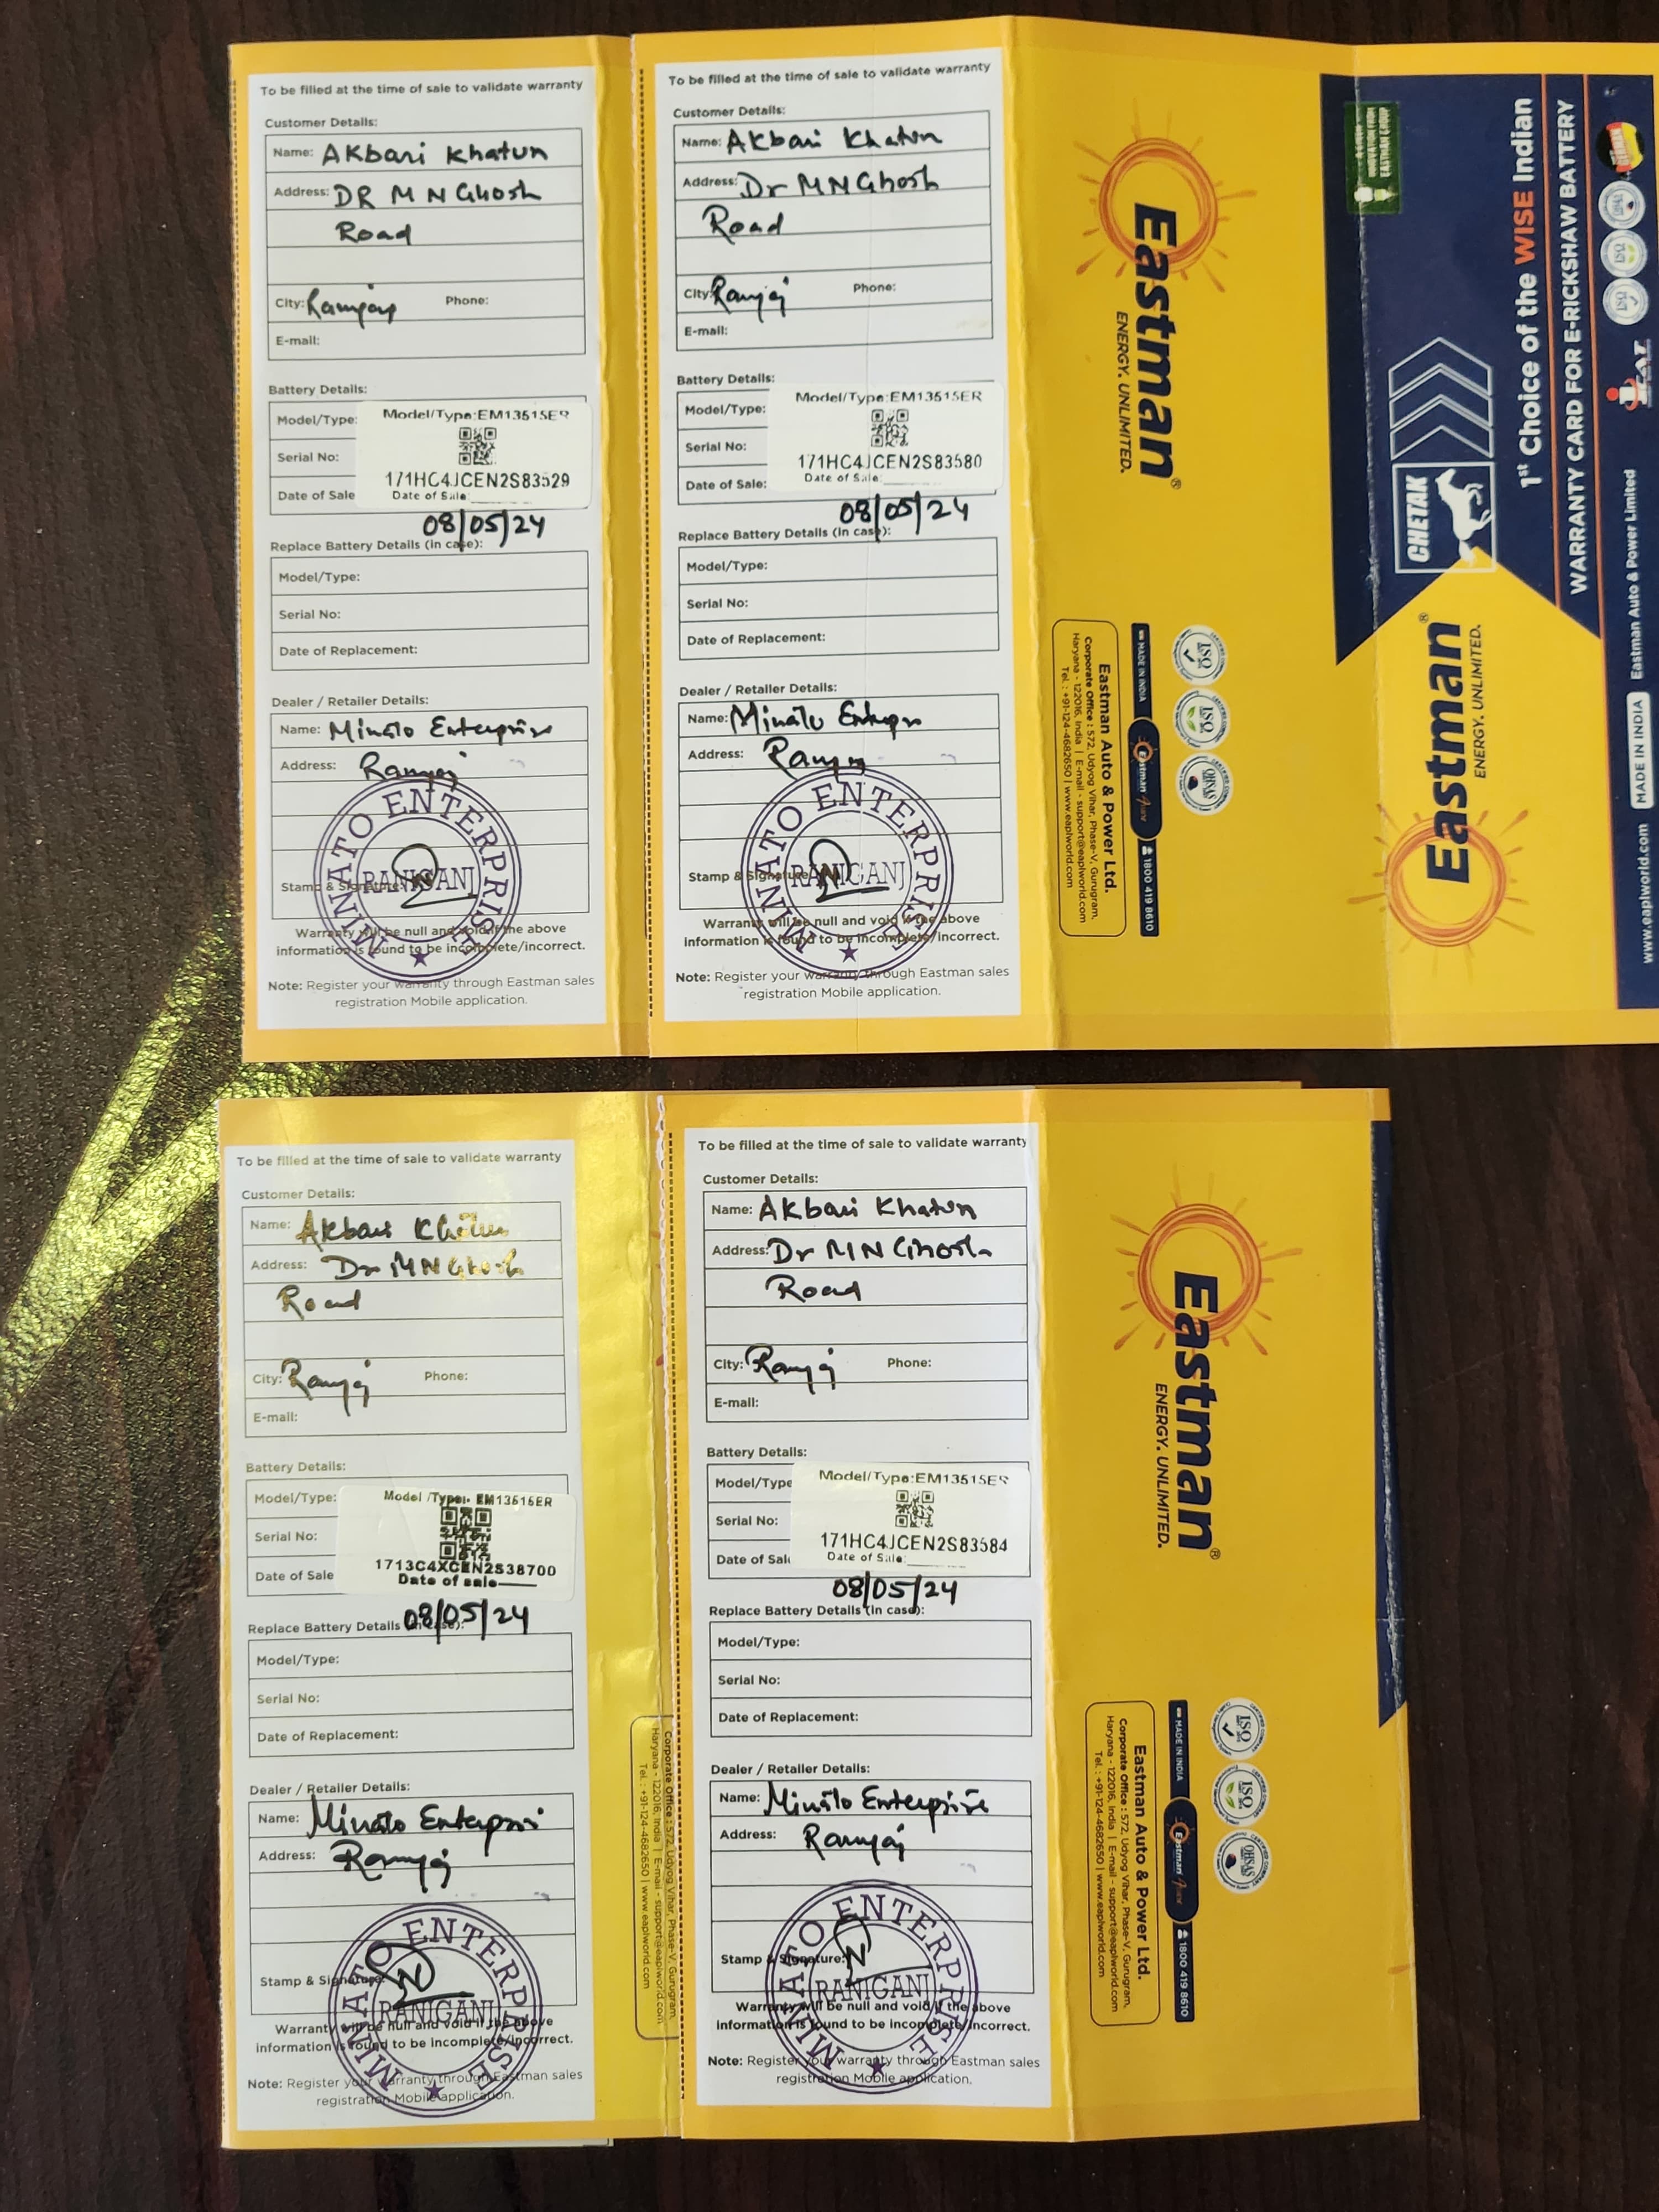 To be filled at the time of sale to validate warranty
Customer Details:
Name: Akbari Khatun
Address: DR M N Ghosh
Road
City: Raniganj Phone:
E-mail:
Battery Details:
Model/Type: Model/Type:EM13515ER
Serial No: 171HC4JCEN2S83529
Date of Sale Date of Sale:
08/05/24
Replace Battery Details (in case):
Model/Type:
Serial No:
Date of Replacement:
Dealer / Retailer Details:
Name: Minato Enterprise
Address: Raniganj
MINATO ENTERPRISE
RANIGANJ
Stamp & Signature:
Warranty will be null and void if the above
information is found to be incomplete/incorrect.
Note: Register your warranty through Eastman sales
registration Mobile application.
To be filled at the time of sale to validate warranty
Customer Details:
Name: Akbari Khatun
Address: Dr M N Ghosh
Road
City: Raniganj Phone:
E-mail:
Battery Details:
Model/Type: Model/Type:EM13515ER
Serial No: 171HC4JCEN2S83580
Date of Sale: Date of Sale:
08/05/24
Replace Battery Details (in case):
Model/Type:
Serial No:
Date of Replacement:
Dealer / Retailer Details:
Name: Minato
Address: Raniganj
MINATO ENTERPRISE
RANIGANJ
Stamp & Signature:
Warranty will be null and void if the above
information is found to be incomplete/incorrect.
Note: Register your warranty through Eastman sales
registration Mobile application.
Eastman®
ENERGY. UNLIMITED.
ISO
ISO
OHSAS
MADE IN INDIA
Eastman
1800 419 8610
Eastman Auto & Power Ltd.
Corporate Office : 572, Udyog Vihar, Phase-V, Gurugram,
Haryana - 122016, India | E-mail - support@eaplworld.com
Tel. : +91-124-4682650 | www.eaplworld.com
CHETAK
1st Choice of the WISE Indian
WARRANTY CARD FOR E-RICKSHAW BATTERY
Eastman®
ENERGY. UNLIMITED.
ISO
ISO
www.eaplworld.com MADE IN INDIA Eastman Auto & Power Limited
To be filled at the time of sale to validate warranty
Customer Details:
Name: Akbari Khatun
Address: Dr M N Ghosh
Road
City: Raniganj Phone:
E-mail:
Battery Details:
Model/Type: Model /Type:- EM13515ER
Serial No: 1713C4XCEN2S38700
Date of Sale Date of sale
08/05/24
Replace Battery Details (in case):
Model/Type:
Serial No:
Date of Replacement:
Dealer / Retailer Details:
Name: Minato Enterprise
Address: Raniganj
MINATO ENTERPRISE
RANIGANJ
Stamp & Signature:
Warranty will be null and void if the above
information is found to be incomplete/incorrect.
Note: Register your warranty through Eastman sales
registration Mobile application.
Corporate Office : 572, Udyog Vihar, Phase-V, Gurugram,
Haryana - 122016, India | E-mail - support@eaplworld.com
Tel. : +91-124-4682650 | www.eaplworld.com
To be filled at the time of sale to validate warranty
Customer Details:
Name: Akbari Khatun
Address: Dr M N Ghosh
Road
City: Raniganj Phone:
E-mail:
Battery Details:
Model/Type Model/Type:EM13515ER
Serial No: 171HC4JCEN2S83584
Date of Sale Date of Sale:
08/05/24
Replace Battery Details (in case):
Model/Type:
Serial No:
Date of Replacement:
Dealer / Retailer Details:
Name: Minato Enterprise
Address: Raniganj
MINATO ENTERPRISE
RANIGANJ
Stamp & Signature:
Warranty will be null and void if the above
information is found to be incomplete/incorrect.
Note: Register your warranty through Eastman sales
registration Mobile application.
Eastman®
ENERGY. UNLIMITED.
ISO
ISO
OHSAS
MADE IN INDIA
Eastman
1800 419 8610
Eastman Auto & Power Ltd.
Corporate Office : 572, Udyog Vihar, Phase-V, Gurugram,
Haryana - 122016, India | E-mail - support@eaplworld.com
Tel. : +91-124-4682650 | www.eaplworld.com